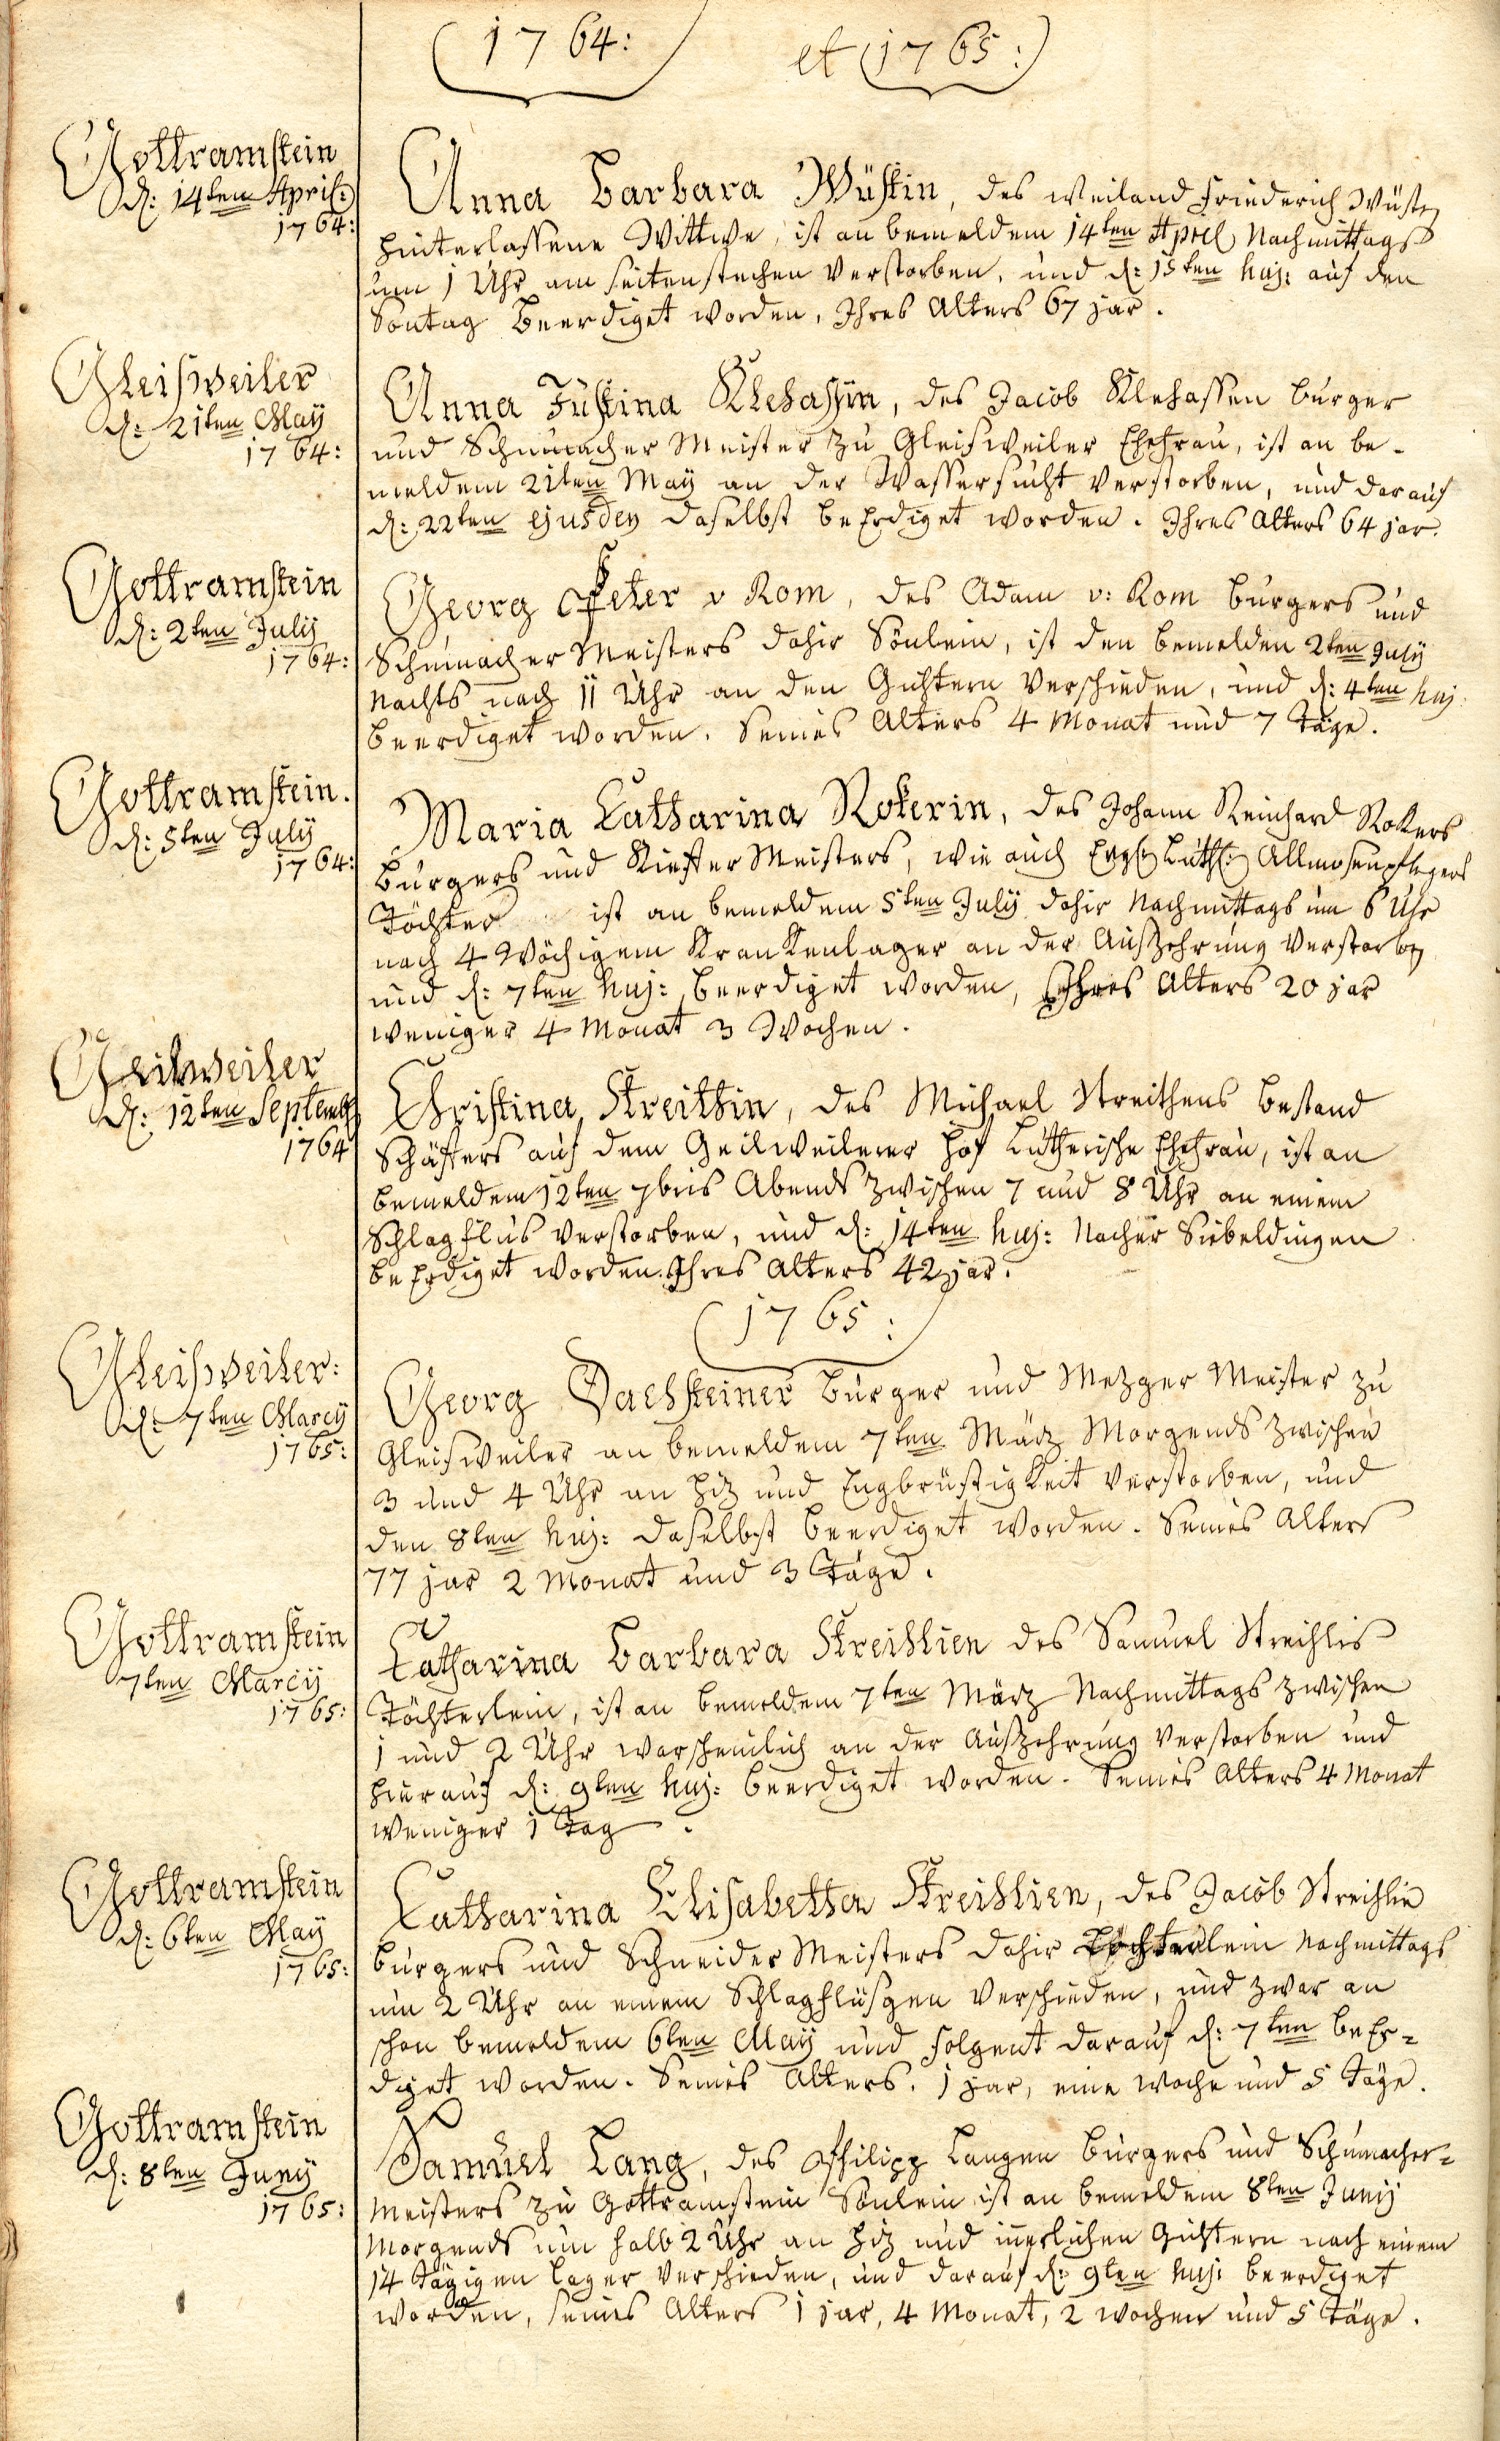 1764: et 1765:
Gottramstein
d: 14ten April:
1764:
Anna Barbara Wüstin, des weiland Friederich Wüsten
hinterlassene Wittwe, ist an bemeldem 14ten Aprel Nachmittags
um 1 Uhr am seitenstechen verstorben, und d: 15ten huj: auf den
Sontag Beerdiget worden, Ihres Alters 67 jar.
Gleisweiler
d: 21ten May
1764:
Anna Justina Klehassin, des Jacob Klehassen burger
und Schumacher Meister zu Gleisweiler Ehefrau, ist an be-
meldem 21ten May an der Wassersucht verstorben, und darauf
d: 22ten ejusdem daselbst beErdiget worden. Ihres Alters 64 jar.
Gottramstein
d: 2ten July
1764:
Georg Peter v Rom, des Adam v: Rom burgers und
Schumacher Meisters dahir Sönlein, ist den bemelden 2ten July
Nachts nach 11 Uhr an den Gichtern verschieden, und d: 4ten huj:
beerdiget worden. Seines Alters 4 Monat und 7 Täge.
Gottramstein.
d: 5ten July
1764:
Maria Catharina Rokerin, des Johann Reinhard Rokers
burgers und Kiefer Meisters, wie auch Luth: Allmosenpflegers
Töchter ist an bemeldem 5ten July dahir Nachmittags um 6 Uhr
nach 4 Wöchigem Krankenlager an der Auszehrung verstorben
und d: 7ten huj: beerdiget worden, Ihres Alters 20 jar
weniger 4 Monat 3 Wochen.
Geilweiler
d: 12ten Septembr
1764
Christina Streithin, des Michael Streithens bestand
Schäffers auf dem Geilweilerer hof Lutherische Ehefrau, ist an
bemeldem 12ten 7bris Abends zwischen 7 und 8 Uhr an einem
Schlagflus verstorben, und d: 14ten huj: Nacher Siebeldingen
beErdiget worden. Ihres Alters 42 jar.
1765:
Gleisweiler:
d: 7ten Marcy
1765:
Georg Dachsteiner burger und Mezger Meister zu
Gleisweiler an bemeldem 7ten März Morgends zwischen
3 und 4 Uhr an hiz und Engbrüstigkeit verstorben, und
den 8ten huj: daselbst beerdiget worden. Seines Alters
77 jar 2 Monat und 3 Täge.
Gottramstein
7ten Marcij
1765:
Catharina Barbara Streihlien des Samuel Streihlis
Töchterlein, ist an bemeldem 7ten März Nachmittags zwischen
1 und 2 Uhr warscheinlich an der Auszehrung verstorben und
hierauf d: 9ten huj: beerdiget worden. Seines Alters 4 Monat
weniger 1 Tag.
Gottramstein
d: 6ten May
1765:
Catharina Elisabetha Streihlien, des Jacob Streihlin
burgers und Schneider Meisters dahir Töchterlein Nachmittags
um 2 Uhr an einem Schlagflüsgen verschieden, und zwar an
schon bemeldem 6ten May und folgent darauf d: 7ten beEr-
diget worden. Seines Alters. 1 jar, eine Woche und 5 Täge.
Gottramstein
d: 8ten Juny
1765:
Samuel Lang, des Philipp Langen burgers und Schumacher-
Meisters zu Gottramstein Sönlein ist an bemeldem 8ten Junij
Morgends um halb 2 Uhr an hiz und innerlichen Gichtern nach einem
14 Tägigen lager verschieden, und darauf d: 9ten huj: beerdiget
worden, seines Alters 1 jar, 4 Monat, 2 wochen und 5 Täge.